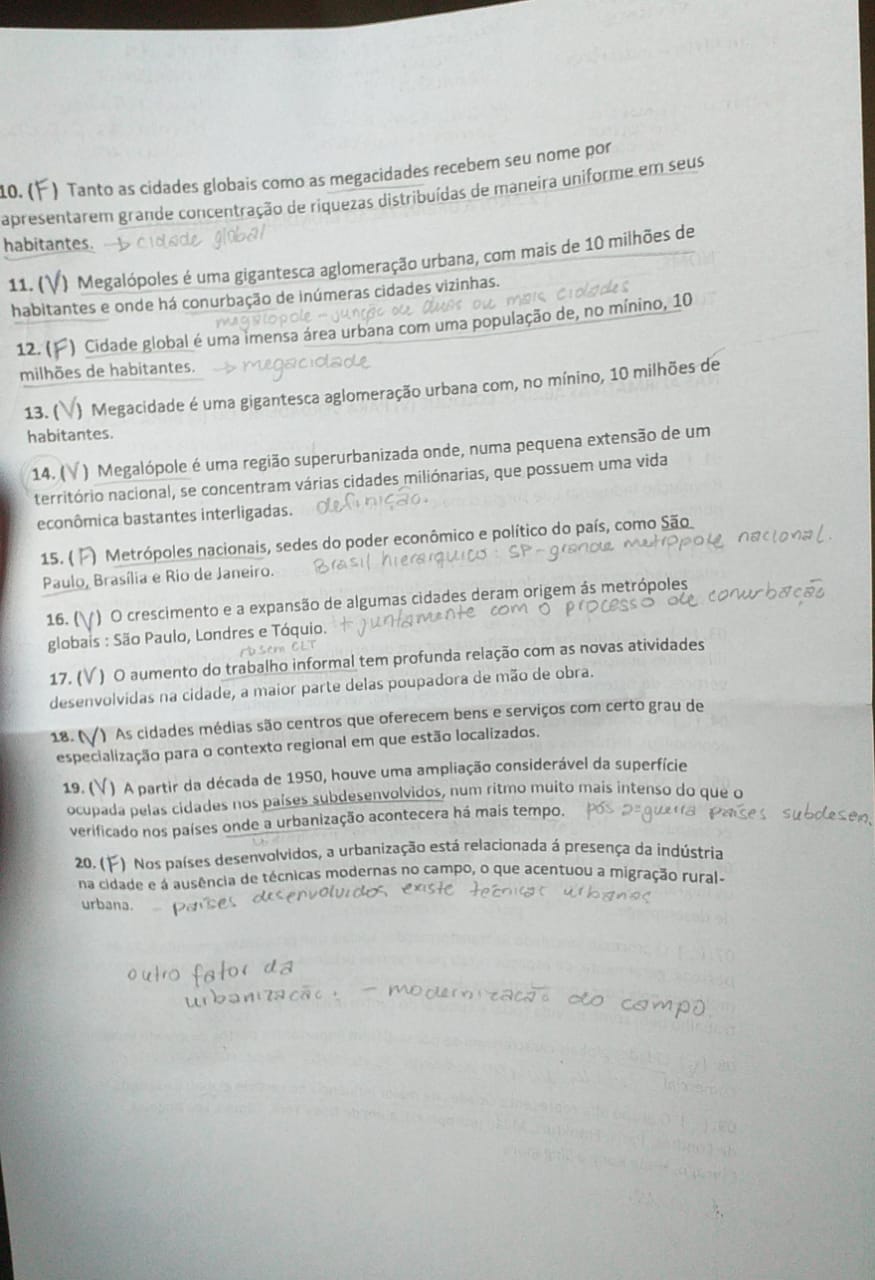 10. (F) Tanto as cidades globais como as megacidades recebem seu nome por
apresentarem grande concentração de riquezas distribuídas de maneira uniforme em seus
habitantes. → cidade global
11. (V) Megalópoles é uma gigantesca aglomeração urbana, com mais de 10 milhões de
habitantes e onde há conurbação de inúmeras cidades vizinhas.
megalopole - junção de duas ou mais cidades
12. (F) Cidade global é uma imensa área urbana com uma população de, no mínino, 10
milhões de habitantes. → megacidade
13. (V) Megacidade é uma gigantesca aglomeração urbana com, no mínino, 10 milhões de
habitantes.
14. (V) Megalópole é uma região superurbanizada onde, numa pequena extensão de um
território nacional, se concentram várias cidades miliónarias, que possuem uma vida
econômica bastantes interligadas. definição.
15. (F) Metrópoles nacionais, sedes do poder econômico e político do país, como São
Paulo, Brasília e Rio de Janeiro. Brasil hierarquico: SP - grande metropole nacional.
16. (V) O crescimento e a expansão de algumas cidades deram origem ás metrópoles
globais : São Paulo, Londres e Tóquio. + juntamente com o processo de conurbação
sem CLT
17. (V) O aumento do trabalho informal tem profunda relação com as novas atividades
desenvolvidas na cidade, a maior parte delas poupadora de mão de obra.
18. (V) As cidades médias são centros que oferecem bens e serviços com certo grau de
especialização para o contexto regional em que estão localizados.
19. (V) A partir da década de 1950, houve uma ampliação considerável da superfície
ocupada pelas cidades nos países subdesenvolvidos, num ritmo muito mais intenso do que o
verificado nos países onde a urbanização acontecera há mais tempo. pós 2ª guerra países subdesen.
20. (F) Nos países desenvolvidos, a urbanização está relacionada á presença da indústria
na cidade e á ausência de técnicas modernas no campo, o que acentuou a migração rural-
urbana. - países desenvolvidos, existe técnicas urbanas
outro fator da
urbanização: - modernização do campo